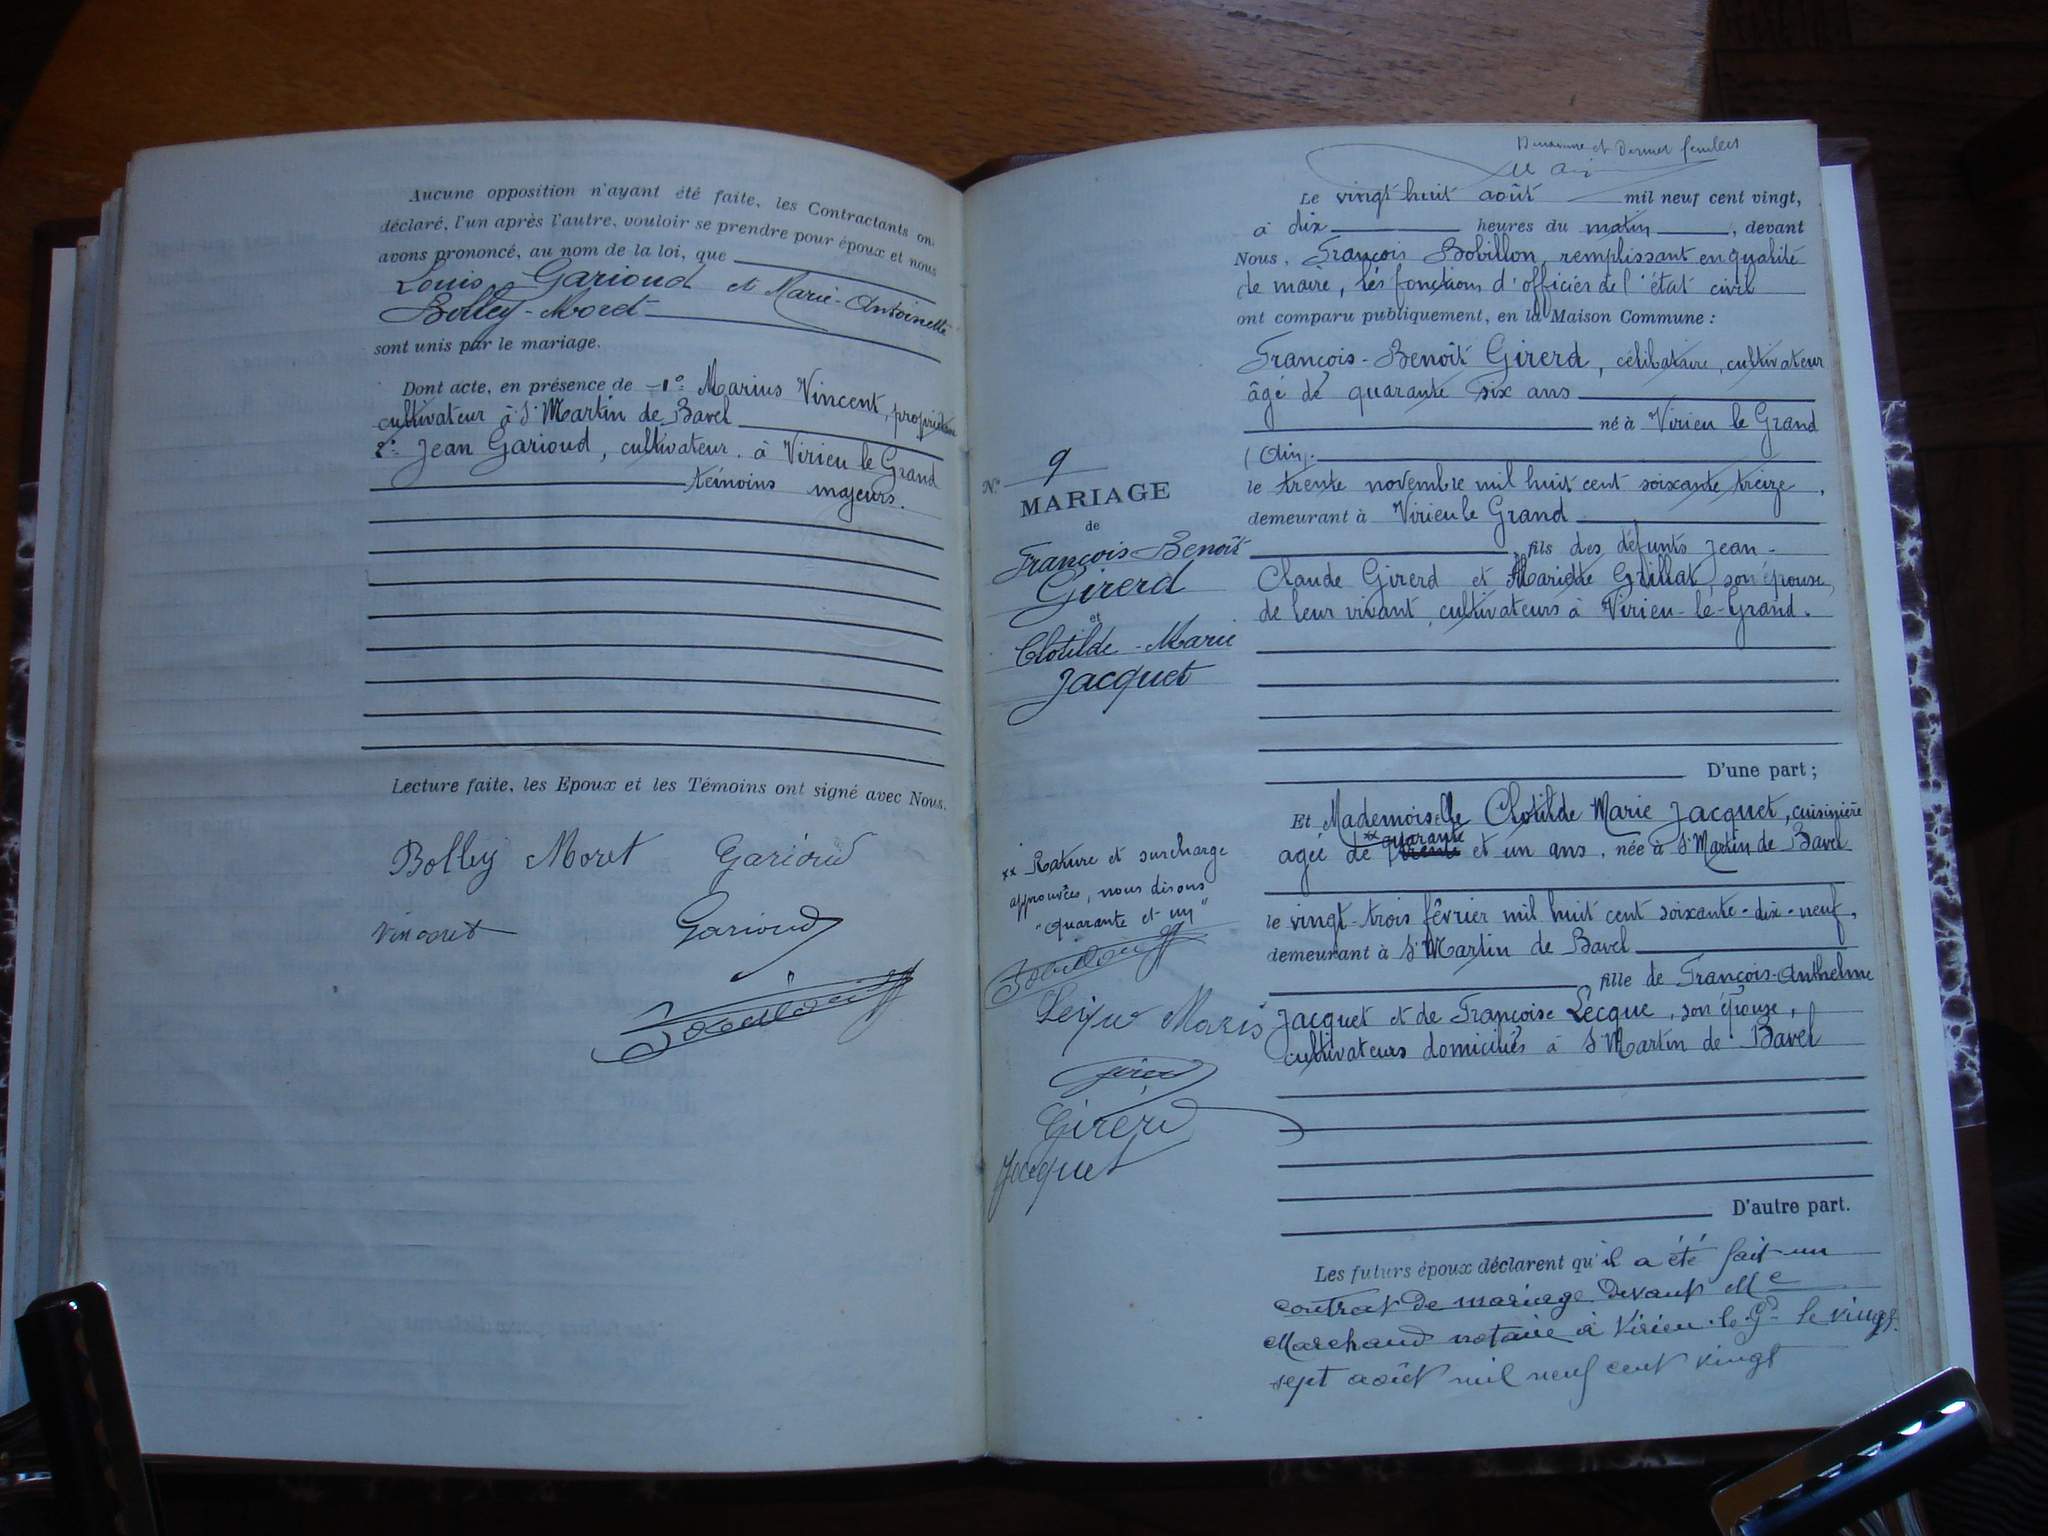 Aucune opposition n'ayant été faite, les Contractants ont
déclaré, l'un après l'autre, vouloir se prendre pour époux et nous
avons prononcé, au nom de la loi, que
Louis Garioud et Marie-Antoinette
Bolley-Moret
sont unis par le mariage.
Dont acte, en présence de 1° Marius Vincent, propriétaire
cultivateur à St Martin de Bavel
2° Jean Garioud, cultivateur à Virieu le Grand
témoins majeurs.
Lecture faite, les Epoux et les Témoins ont signé avec Nous.
Bolley Moret Garioud
Vincent Garioud
Bobillon
N° 9
MARIAGE
de
François Benoit
Girerd
et
Clotilde-Marie
Jacquet
xx Rature et surcharge
approuvées, nous disons
"quarante et un"
Bobillon
Girerd
Jacquet
Le vingt huit août mil neuf cent vingt,
à dix heures du matin, devant
Nous, François Bobillon, remplissant en qualité
de maire, les fonctions d'officier de l'état civil
ont comparu publiquement, en la Maison Commune :
François-Benoit Girerd, célibataire, cultivateur
âgé de quarante six ans
né à Virieu le Grand
(Ain).
le trente novembre mil huit cent soixante treize,
demeurant à Virieu le Grand
fils des défunts Jean-
Claude Girerd et Mariette Grillat, son épouse,
de leur vivant, cultivateurs à Virieu-le-Grand.
D'une part ;
Et Mademoiselle Clotilde Marie Jacquet, cuisinière
xx quarante
agée de trente et un ans, née à St Martin de Bavel
le vingt-trois février mil huit cent soixante-dix-neuf,
demeurant à St Martin de Bavel
fille de François-Anthelme
Jacquet et de Françoise Lecque, son épouse,
cultivateurs domiciliés à St Martin de Bavel
D'autre part.
Les futurs époux déclarent qu'il a été fait un
contrat de mariage devant Me
Marchand notaire à Virieu-le-Gd le vingt
sept août mil neuf cent vingt